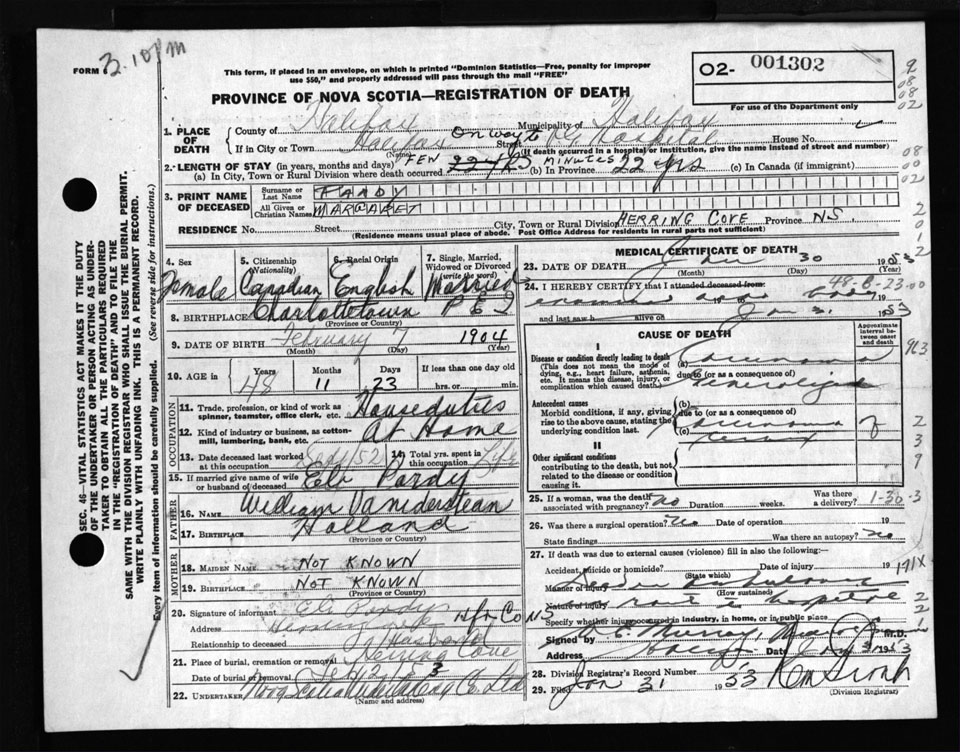 3.10 PM
FORM
This form, if placed in an envelope, on which is printed "Dominion Statistics—Free, penalty for improper
use $50," and properly addressed will pass through the mail "FREE"
PROVINCE OF NOVA SCOTIA—REGISTRATION OF DEATH
O2- 001302
For use of the Department only
1. PLACE OF DEATH
County of Halifax Municipality of Halifax
If in City or Town Halifax (Name) On way to Street V.G. Hospital House No.
(If death occurred in a hospital or institution, give the name instead of street and number)
2. LENGTH OF STAY (in years, months and days) FEW MINUTES
(a) In City, Town or Rural Division where death occurred 22 yrs (b) In Province 22 yrs (c) In Canada (if immigrant)
3. PRINT NAME OF DECEASED
Surname or Last Name PARDY
All Given or Christian Names MARGARET
RESIDENCE No. Street City, Town or Rural Division HERRING COVE Province NS
(Residence means usual place of abode. Post Office Address for residents in rural parts not sufficient)
4. Sex
Female
5. Citizenship (Nationality)
Canadian
6. Racial Origin
English
7. Single, Married, Widowed or Divorced (write the word)
Married
8. BIRTHPLACE Charlottetown P E I
(Province or Country)
9. DATE OF BIRTH February 7 1904
(Month) (Day) (Year)
10. AGE in Years Months Days If less than one day old
48 11 23 hrs. or min.
11. Trade, profession, or kind of work as spinner, teamster, office clerk, etc. Houseduties
12. Kind of industry or business, as cotton-mill, lumbering, bank, etc. At Home
13. Date deceased last worked at this occupation
14. Total yrs. spent in this occupation Life
15. If married give name of wife or husband of deceased Eli Pardy
OCCUPATION
FATHER
16. Name William Vaniderstean
17. Birthplace Holland
(Province or Country)
MOTHER
18. MAIDEN NAME NOT KNOWN
19. BIRTHPLACE NOT KNOWN
(Province or Country)
20. Signature of informant Eli Pardy
Address Herring Cove Hfx Co NS
Relationship to deceased Husband
21. Place of burial, cremation or removal Herring Cove
Date of burial or removal
22. UNDERTAKER Nova Scotia Undertaking Co. Ltd
(Name and address)
MEDICAL CERTIFICATE OF DEATH
23. DATE OF DEATH Jan 30 1953
(Month) (Day)
24. I HEREBY CERTIFY that I attended deceased from:
48-8-23-00
and last saw h alive on Jan 31 1953
CAUSE OF DEATH
Approximate interval between onset and death
I
Disease or condition directly leading to death
(This does not mean the mode of dying, e.g., heart failure, asthenia, etc. It means the disease, injury, or complication which caused death.)
(a) Carcinoma
due to (or as a consequence of)
Antecedent causes
Morbid conditions, if any, giving rise to the above cause, stating the underlying condition last.
(b) due to (or as a consequence of)
Carcinoma of
(c) cervix
II
Other significant conditions
contributing to the death, but not related to the disease or condition causing it.
25. If a woman, was the death associated with pregnancy? no Duration weeks. Was there a delivery? 1-30-3
26. Was there a surgical operation? no Date of operation 19
State findings Was there an autopsy? no
27. If death was due to external causes (violence) fill in also the following:—
Accident, suicide or homicide? Date of injury 19 171X
(State which)
Manner of injury Dead in ambulance
(How sustained)
Nature of injury route to hospital
Specify whether injury occurred in industry, in home, or in public place
Signed by Murray M.D.
Address Date 1953
28. Division Registrar's Record Number
29. Filed Jan 31 1953
(Division Registrar)
SEC. 46—VITAL STATISTICS ACT MAKES IT THE DUTY
OF THE UNDERTAKER OR PERSON ACTING AS UNDERTAKER TO OBTAIN ALL THE PARTICULARS REQUIRED
IN THE "REGISTRATION OF DEATH" AND TO FILE THE
SAME WITH THE DIVISION REGISTRAR WHO SHALL ISSUE THE BURIAL PERMIT.
WRITE PLAINLY WITH UNFADING INK. THIS IS A PERMANENT RECORD.
Every item of information should be carefully supplied. (See reverse side for instructions.)